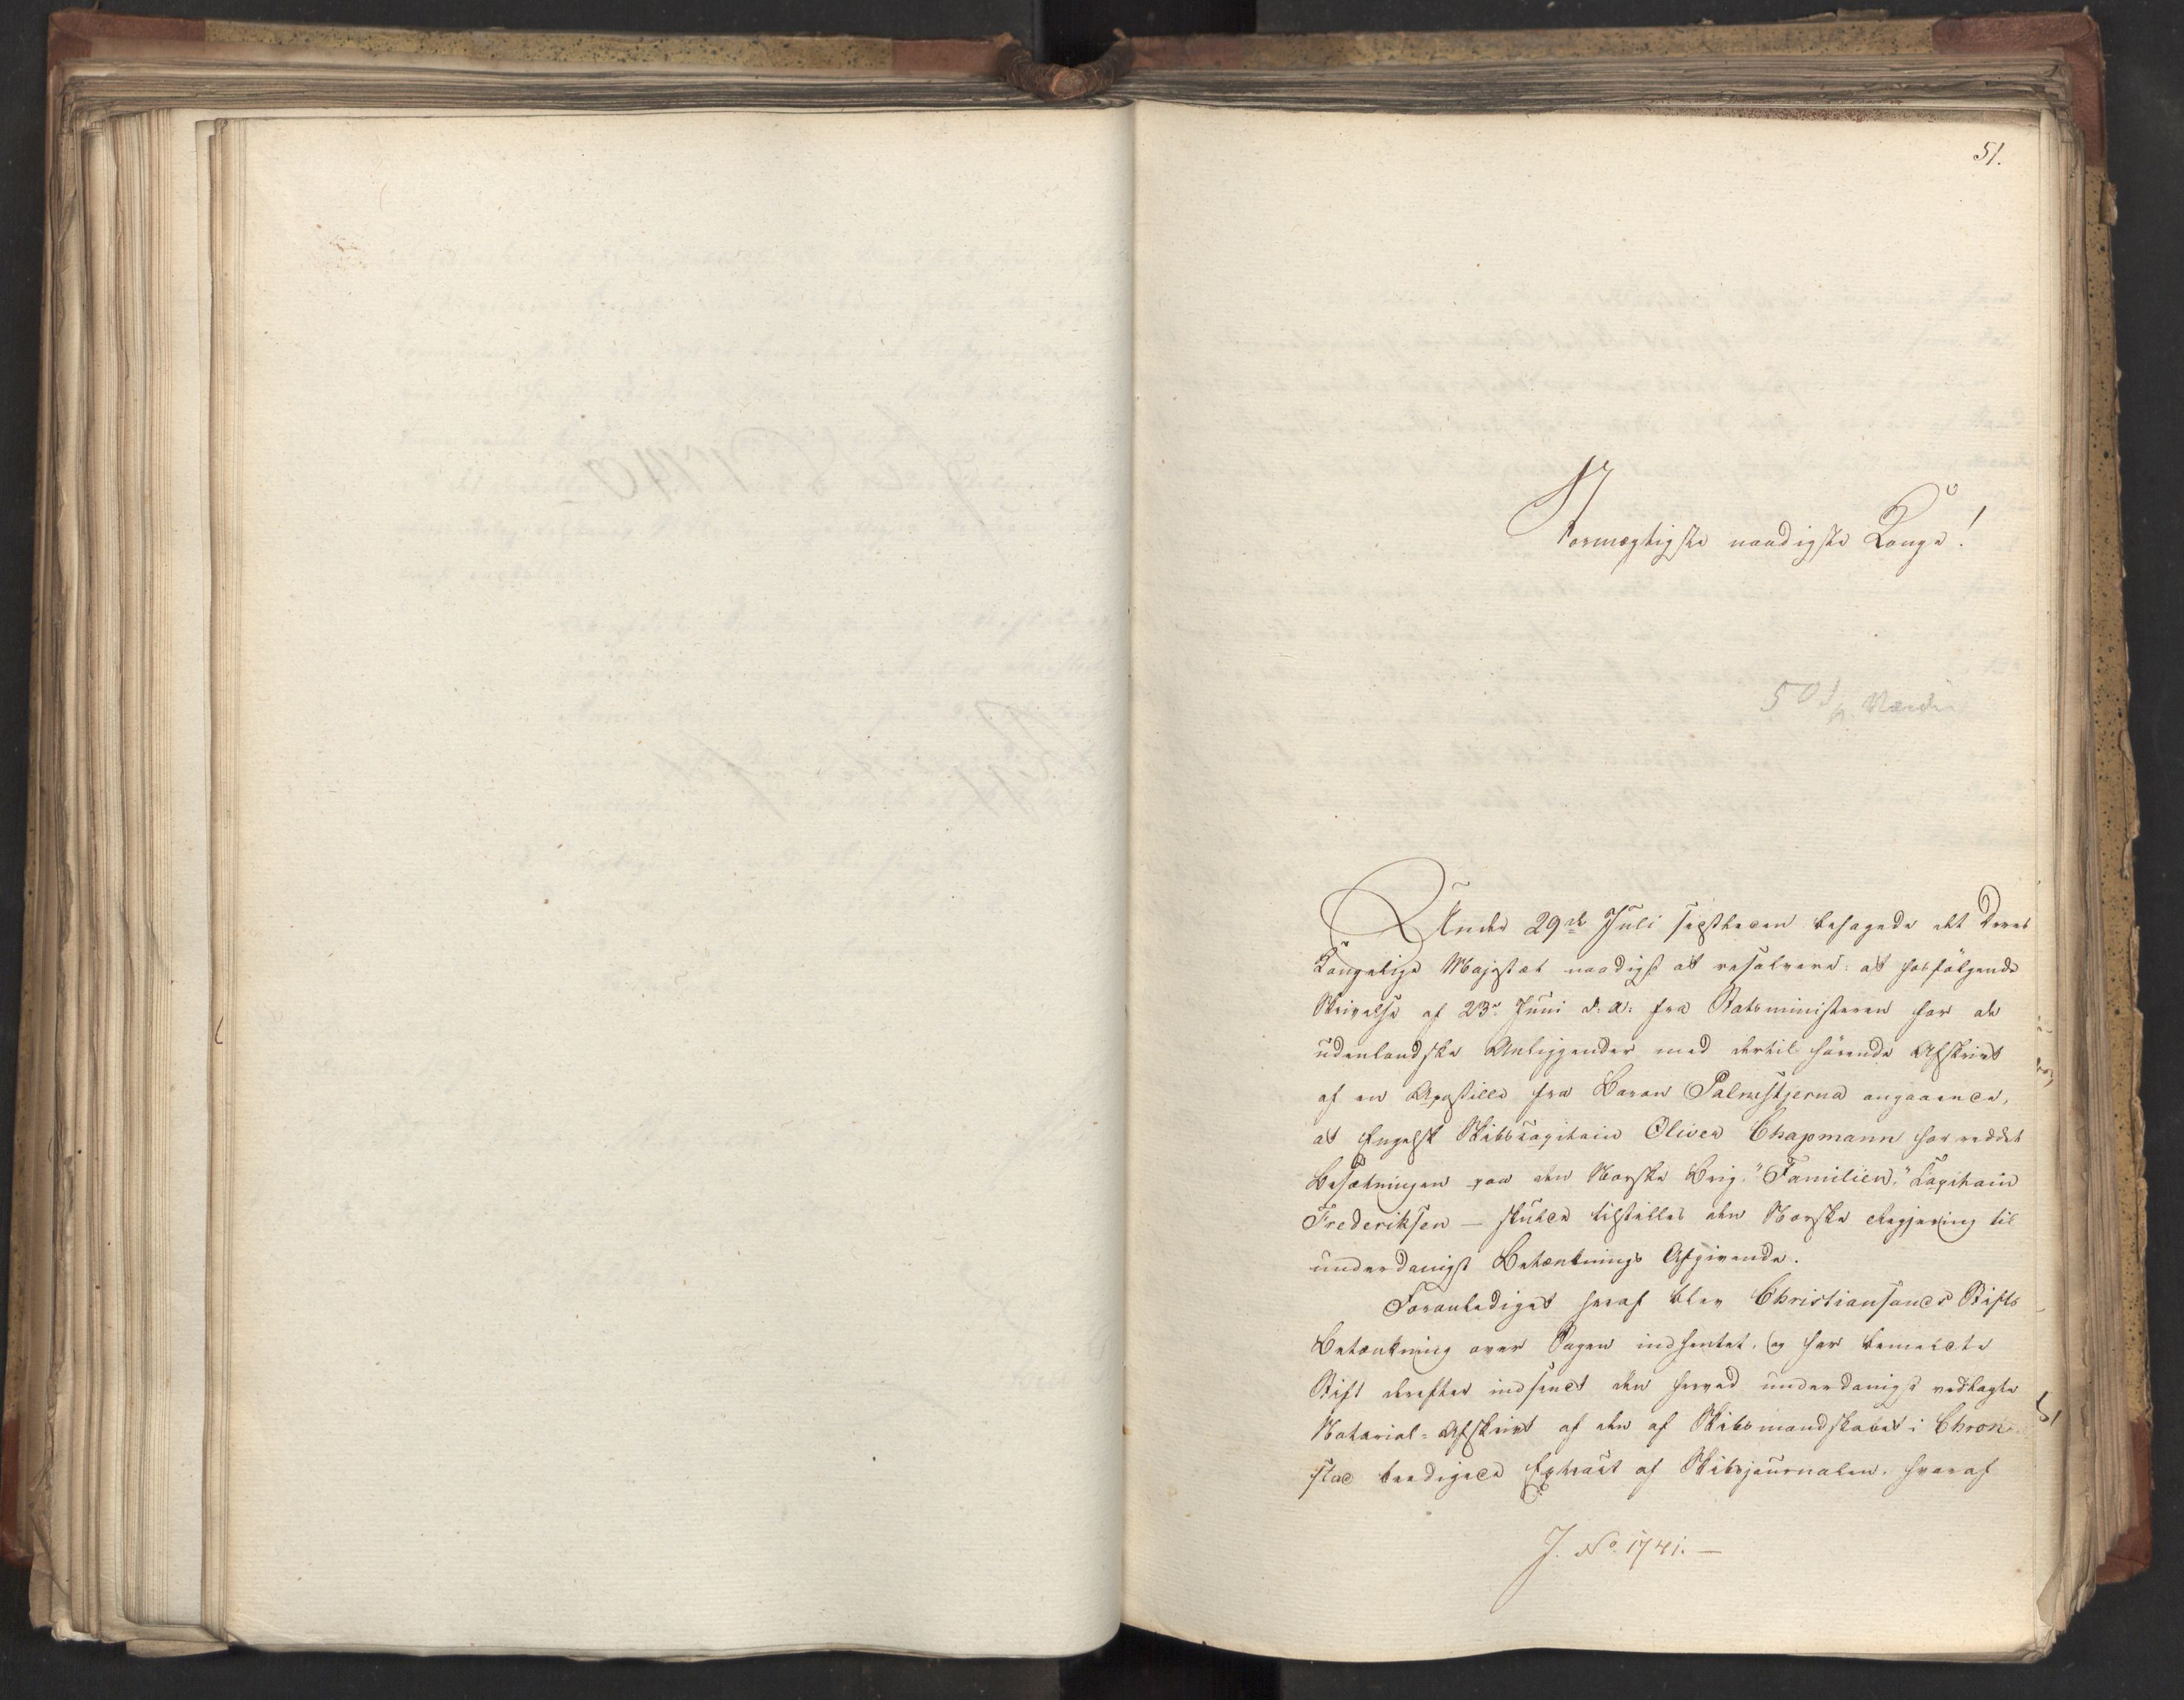 51.
Stormægtigste naadigste Konge!
50
Under 29de Juli sidstleden behagede det Deres
Kongelige Majestæt naadigst at resolvere: at hosfølgende
Skrivelse af 23de Juni d. A. fra Statsministeren for de
udenlandske Anliggender med dertil hørende Afskrivt
af en Apostille fra Baron Palmstjerna angaaende,
at Engelsk Skibskapitain Oliver Chapmann har reddet
Besætningen paa den Norske Brig "Familien," Kapitain
Frederiksen – skulde tilstilles den Norske Regjering til
underdanigst Betænknings Afgivende.
Foranlediget heraf blev Christiansands Stifts
Betænkning over Sagen indhentet, og har bemeldte
Stift derefter indsendt den herved underdanigst vedlagte
Notarial-Afskrivt af den af Skibsmandskabet i Chron-
stad beedigede Extract af Skibsjournalen, hvoraf
J. No. 1741. –